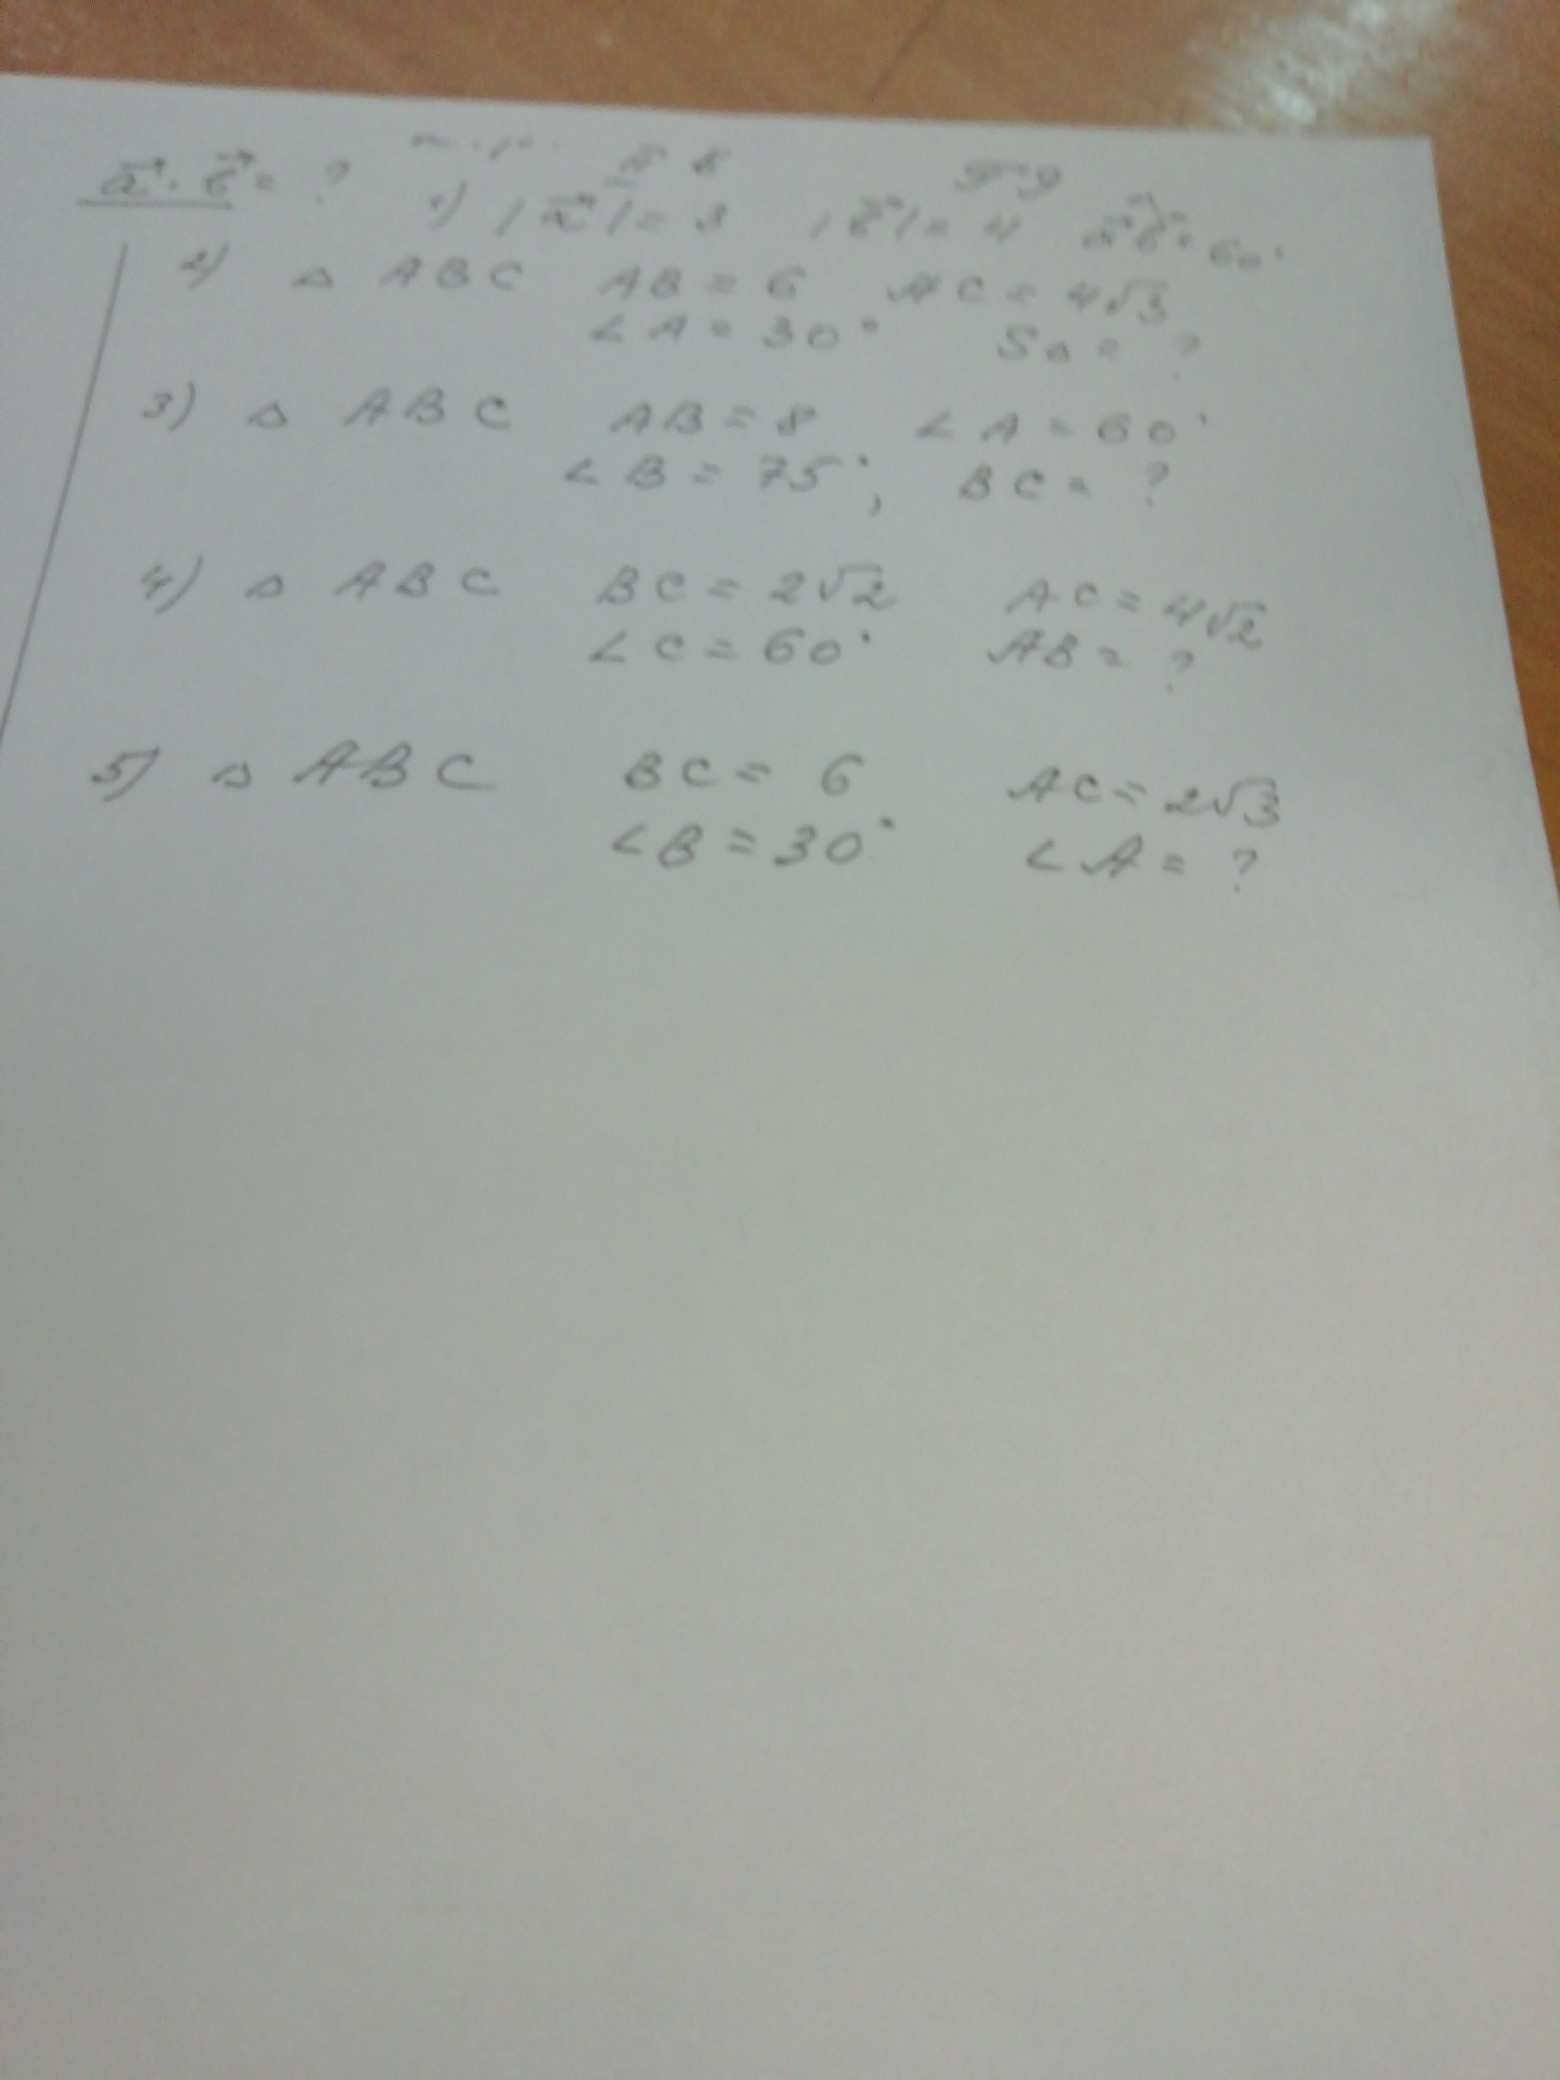 a⃗ · b⃗ = ?
1) |a⃗| = 3 |b⃗| = 4 a⃗ b⃗ = 60°
2) △ ABC AB = 6 AC = 4√3
∠A = 30° S△ = ?
3) △ ABC AB = 8 ∠A = 60°
∠B = 75°; BC = ?
4) △ ABC BC = 2√2 AC = 4√2
∠C = 60° AB = ?
5) △ ABC BC = 6 AC = 2√3
∠B = 30° ∠A = ?